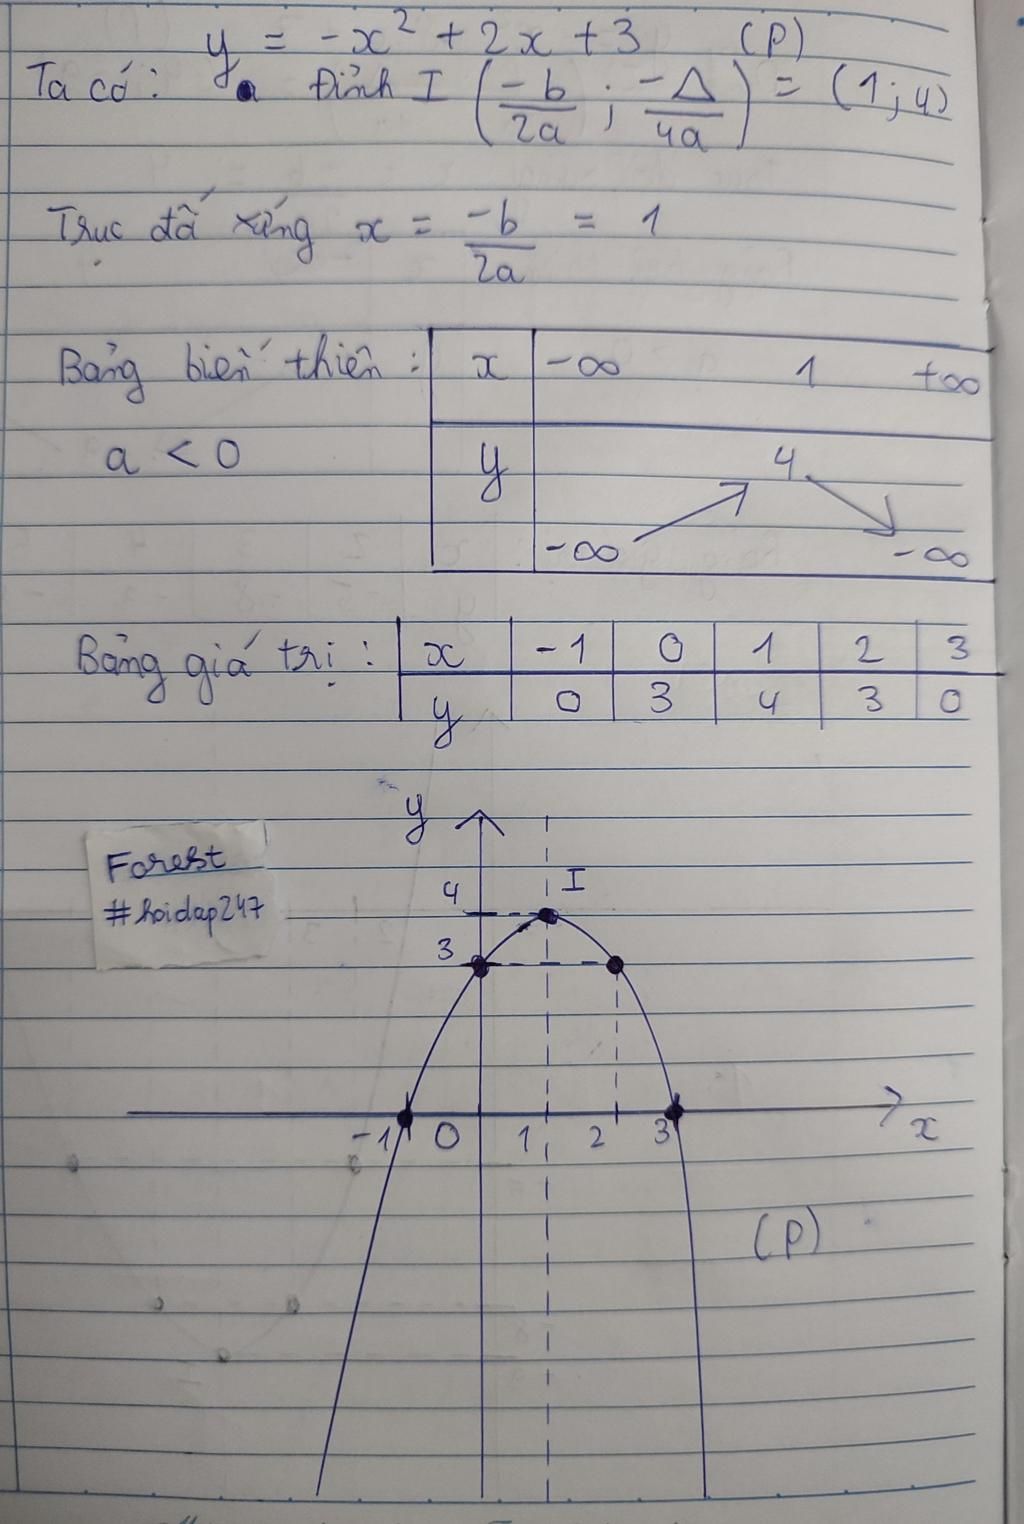 y = -x² + 2x + 3 (P)
Ta có: Đỉnh I (-b/2a ; -Δ/4a) = (1; 4)
Trục đối xứng x = -b/2a = 1
Bảng biến thiên: x -∞ 1 +∞
a < 0 y 4
-∞ -∞
Bảng giá trị: x -1 0 1 2 3
y 0 3 4 3 0
y
Forest
#hoidap247
4 I
3
-1 0 1 2 3 x
(P)